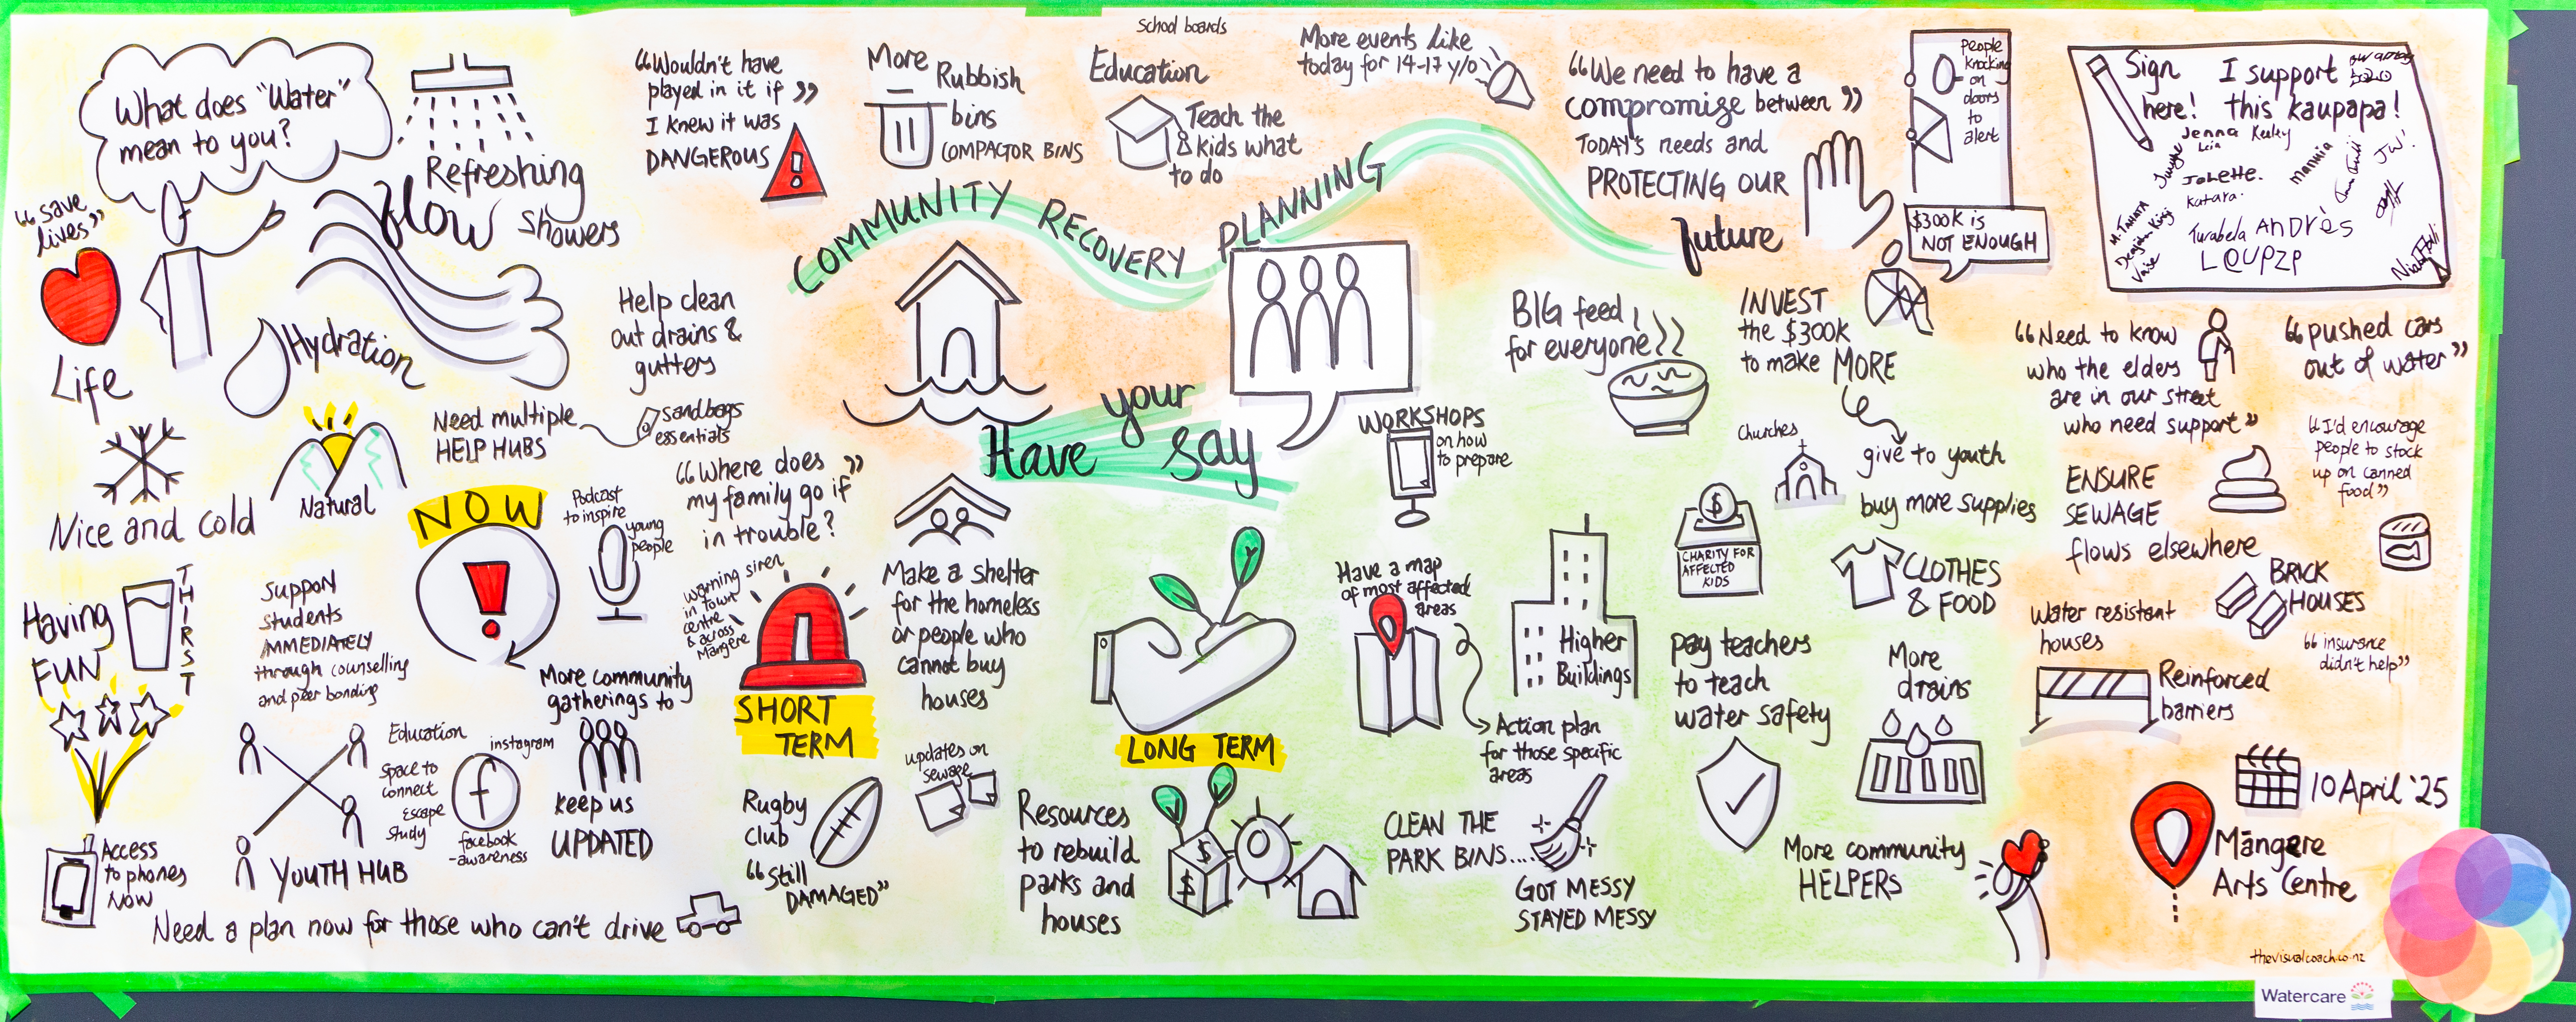 What does "Water"
mean to you?
Refreshing
flow showers
"save
lives"
Life
Hydration
Nice and cold
Natural
Having
FUN
THIRST
"Wouldn't have
played in it if"
I knew it was
DANGEROUS
More Rubbish
bins
COMPACTOR BINS
School boards
Education
Teach the
kids what
to do
More events like
today for 14-17 y/o
"We need to have a
compromise between"
TODAY's needs and
PROTECTING OUR
future
people
knocking
on
doors
to
alert
$300K is
NOT ENOUGH
Sign
here!
I support
this kaupapa!
Jenna Keeley
Leia
JoLette.
Katara.
Mannia
JW!
M. TAHATA
Turabela ANDRÉS
COMMUNITY RECOVERY PLANNING
Have your say
Help clean
out drains &
gutters
Need multiple
HELP HUBS
sandbags
essentials
NOW
Podcast
to inspire
young
people
"Where does"
my family go if
in trouble?
Warning siren
in town
centre
& across
Mangere
SHORT
TERM
Support
students
IMMEDIATELY
through counselling
and peer bonding
More community
gatherings to
keep us
UPDATED
Education
Space to
connect
Escape
study
instagram
f
facebook
-awareness
YOUTH HUB
Access
to phones
NOW
Need a plan now for those who can't drive
Make a shelter
for the homeless
or people who
cannot buy
houses
updates on
sewage
Rugby
club
"Still
DAMAGED"
LONG TERM
Resources
to rebuild
parks and
houses
$
$
BIG feed
for everyone
INVEST
the $300K
to make MORE
give to youth
buy more supplies
CLOTHES
& FOOD
WORKSHOPS
on how
to prepare
Churches
$
CHARITY FOR
AFFECTED
KIDS
Have a map
of most affected
areas
Action plan
for those specific
areas
Higher
Buildings
pay teachers
to teach
water safety
More
drains
CLEAN THE
PARK BINS....
GOT MESSY
STAYED MESSY
More community
HELPERS
"Need to know
who the elders
are in our street
who need support"
"pushed cars
out of water"
"I'd encourage
people to stock
up on canned
food"
ENSURE
SEWAGE
flows elsewhere
BRICK
HOUSES
Water resistant
houses
"insurance
didn't help"
Reinforced
barriers
10 April '25
Māngere
Arts Centre
thevisualcoach.co.nz
Watercare